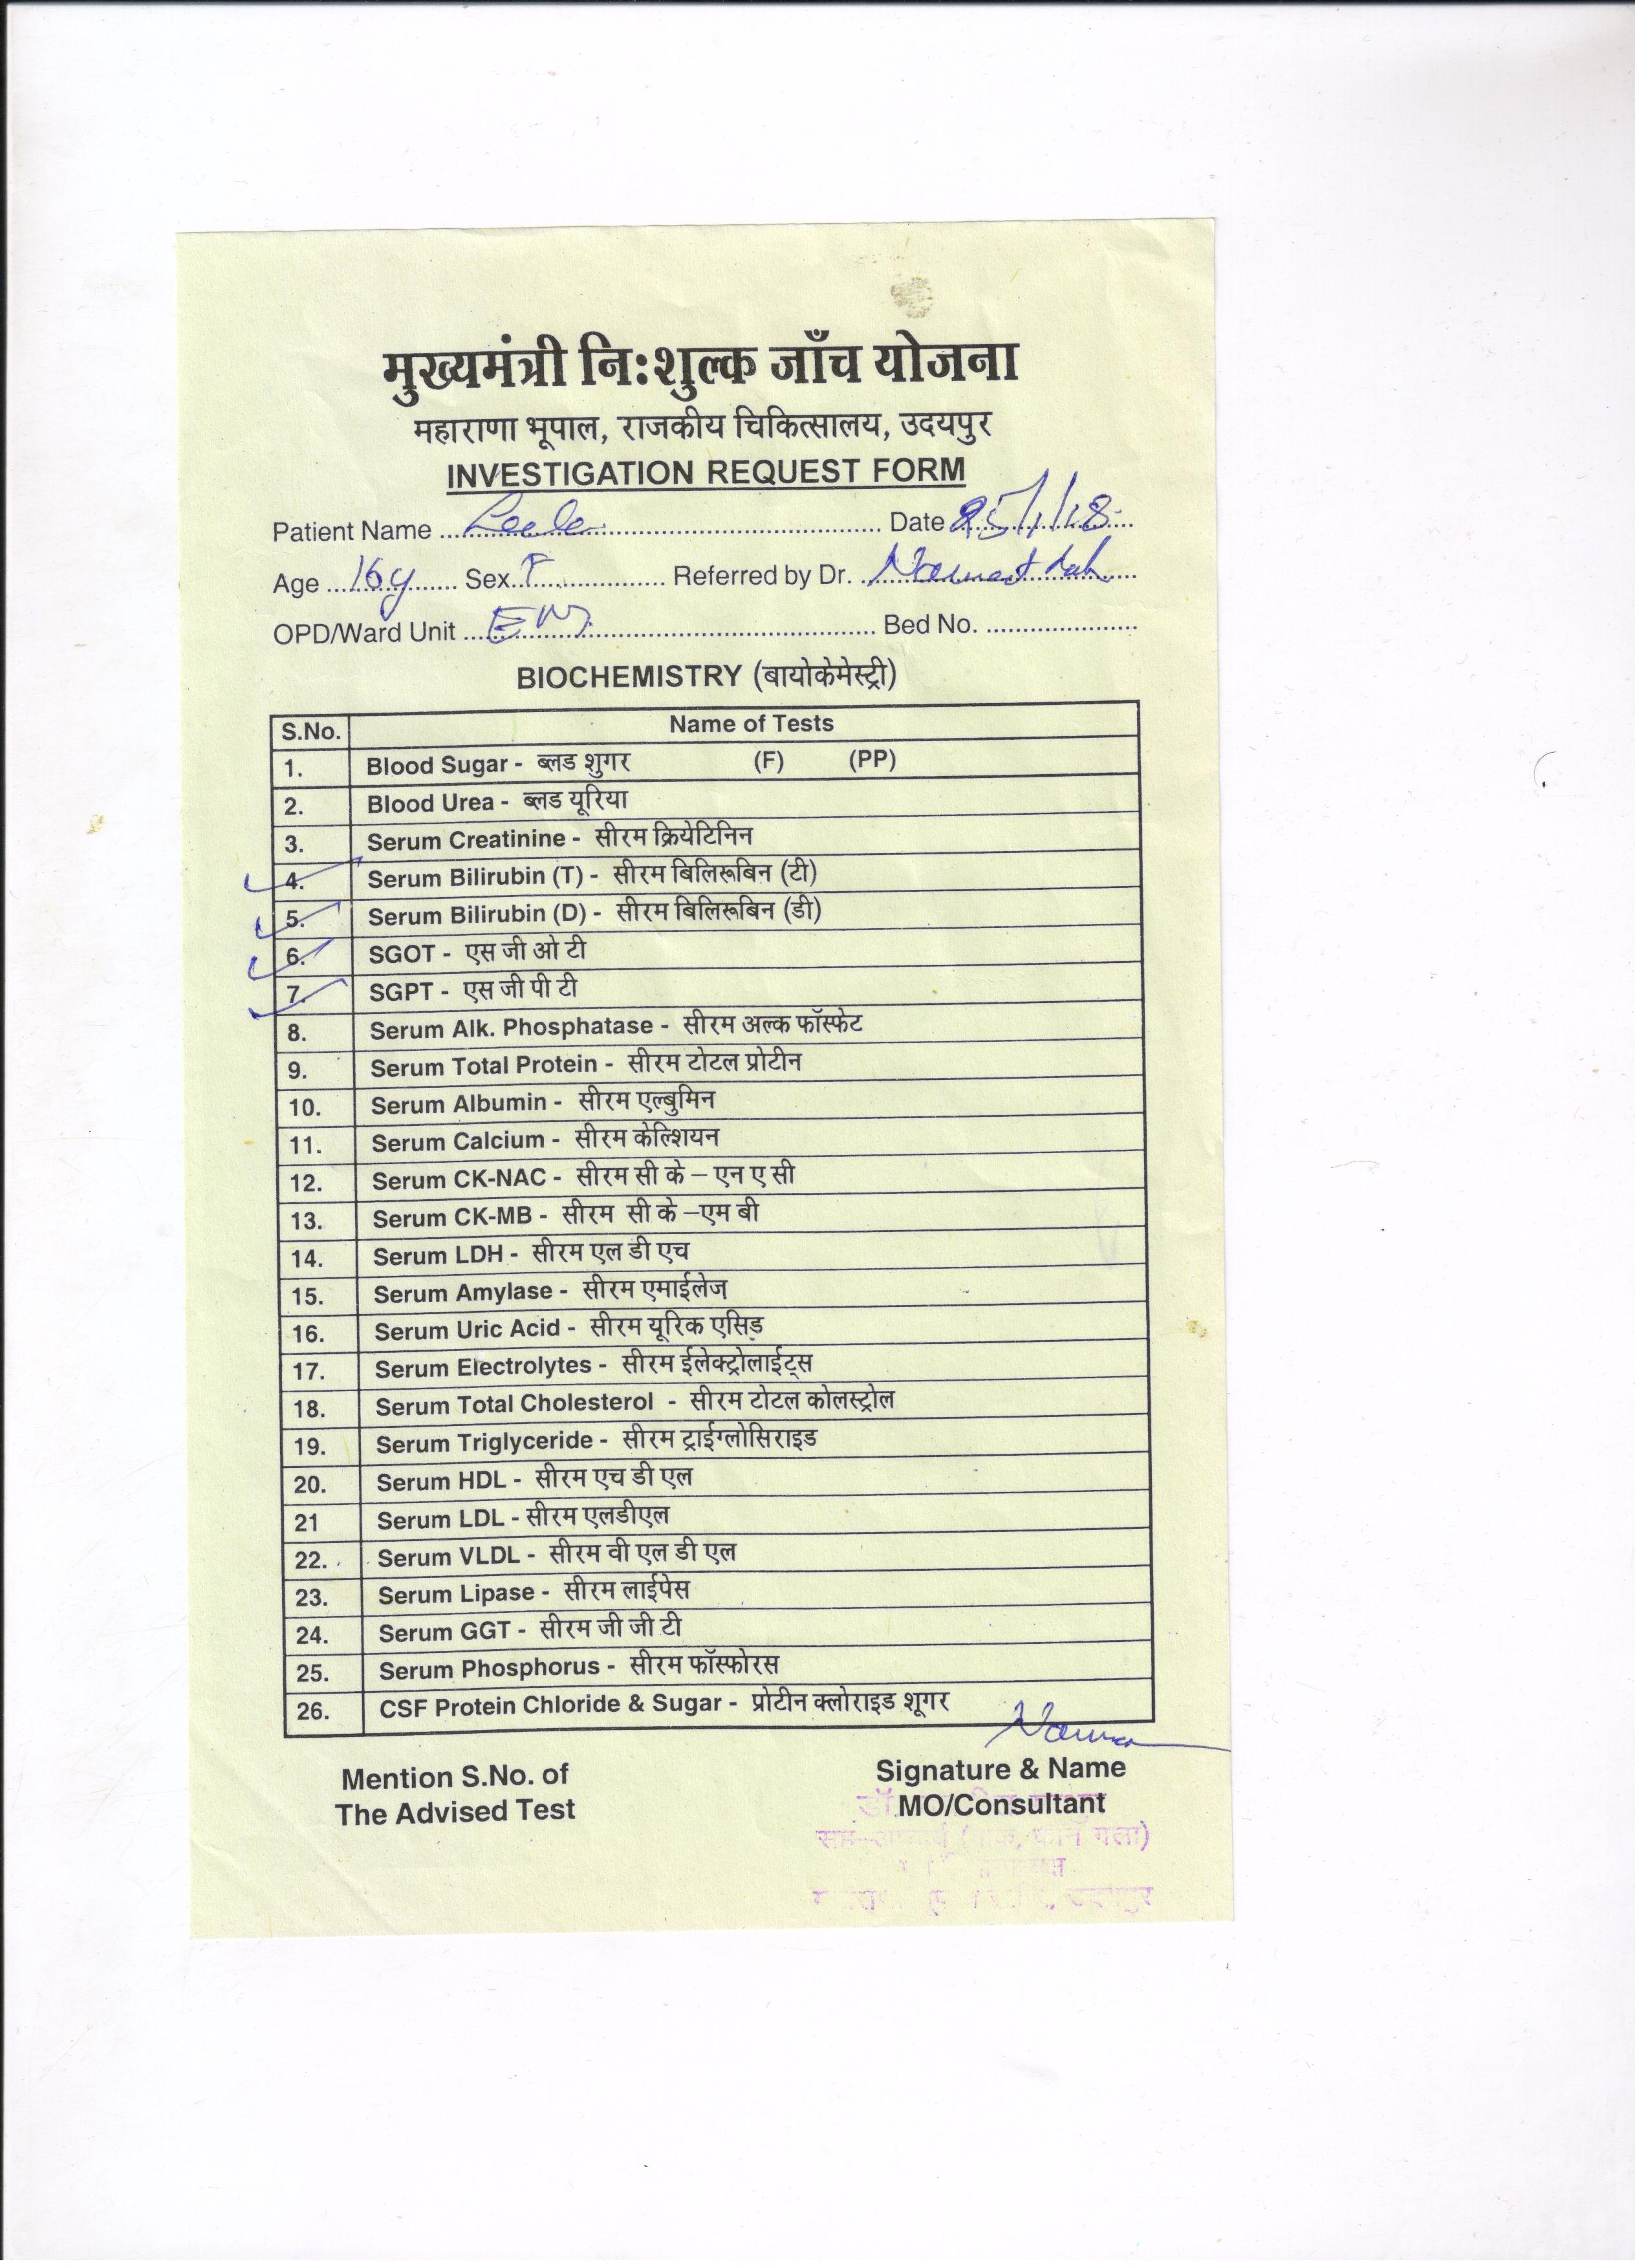 मुख्यमंत्री निःशुल्क जाँच योजना
महाराणा भूपाल, राजकीय चिकित्सालय, उदयपुर
INVESTIGATION REQUEST FORM
Patient Name Leela Date 25/1/18
Age 16y Sex F Referred by Dr.
OPD/Ward Unit Bed No.
BIOCHEMISTRY (बायोकेमेस्ट्री)
S.No. Name of Tests
1. Blood Sugar - ब्लड शुगर (F) (PP)
2. Blood Urea - ब्लड यूरिया
3. Serum Creatinine - सीरम क्रियेटिनिन
4. Serum Bilirubin (T) - सीरम बिलिरूबिन (टी)
5. Serum Bilirubin (D) - सीरम बिलिरूबिन (डी)
6. SGOT - एस जी ओ टी
7. SGPT - एस जी पी टी
8. Serum Alk. Phosphatase - सीरम अल्क फॉस्फेट
9. Serum Total Protein - सीरम टोटल प्रोटीन
10. Serum Albumin - सीरम एल्बुमिन
11. Serum Calcium - सीरम केल्शियन
12. Serum CK-NAC - सीरम सी के – एन ए सी
13. Serum CK-MB - सीरम सी के –एम बी
14. Serum LDH - सीरम एल डी एच
15. Serum Amylase - सीरम एमाईलेज
16. Serum Uric Acid - सीरम यूरिक एसिड
17. Serum Electrolytes - सीरम ईलेक्ट्रोलाईट्स
18. Serum Total Cholesterol - सीरम टोटल कोलस्ट्रोल
19. Serum Triglyceride - सीरम ट्राईग्लोसिराइड
20. Serum HDL - सीरम एच डी एल
21 Serum LDL - सीरम एलडीएल
22. Serum VLDL - सीरम वी एल डी एल
23. Serum Lipase - सीरम लाईपेस
24. Serum GGT - सीरम जी जी टी
25. Serum Phosphorus - सीरम फॉस्फोरस
26. CSF Protein Chloride & Sugar - प्रोटीन क्लोराइड शूगर
Mention S.No. of
The Advised Test
Signature & Name
MO/Consultant